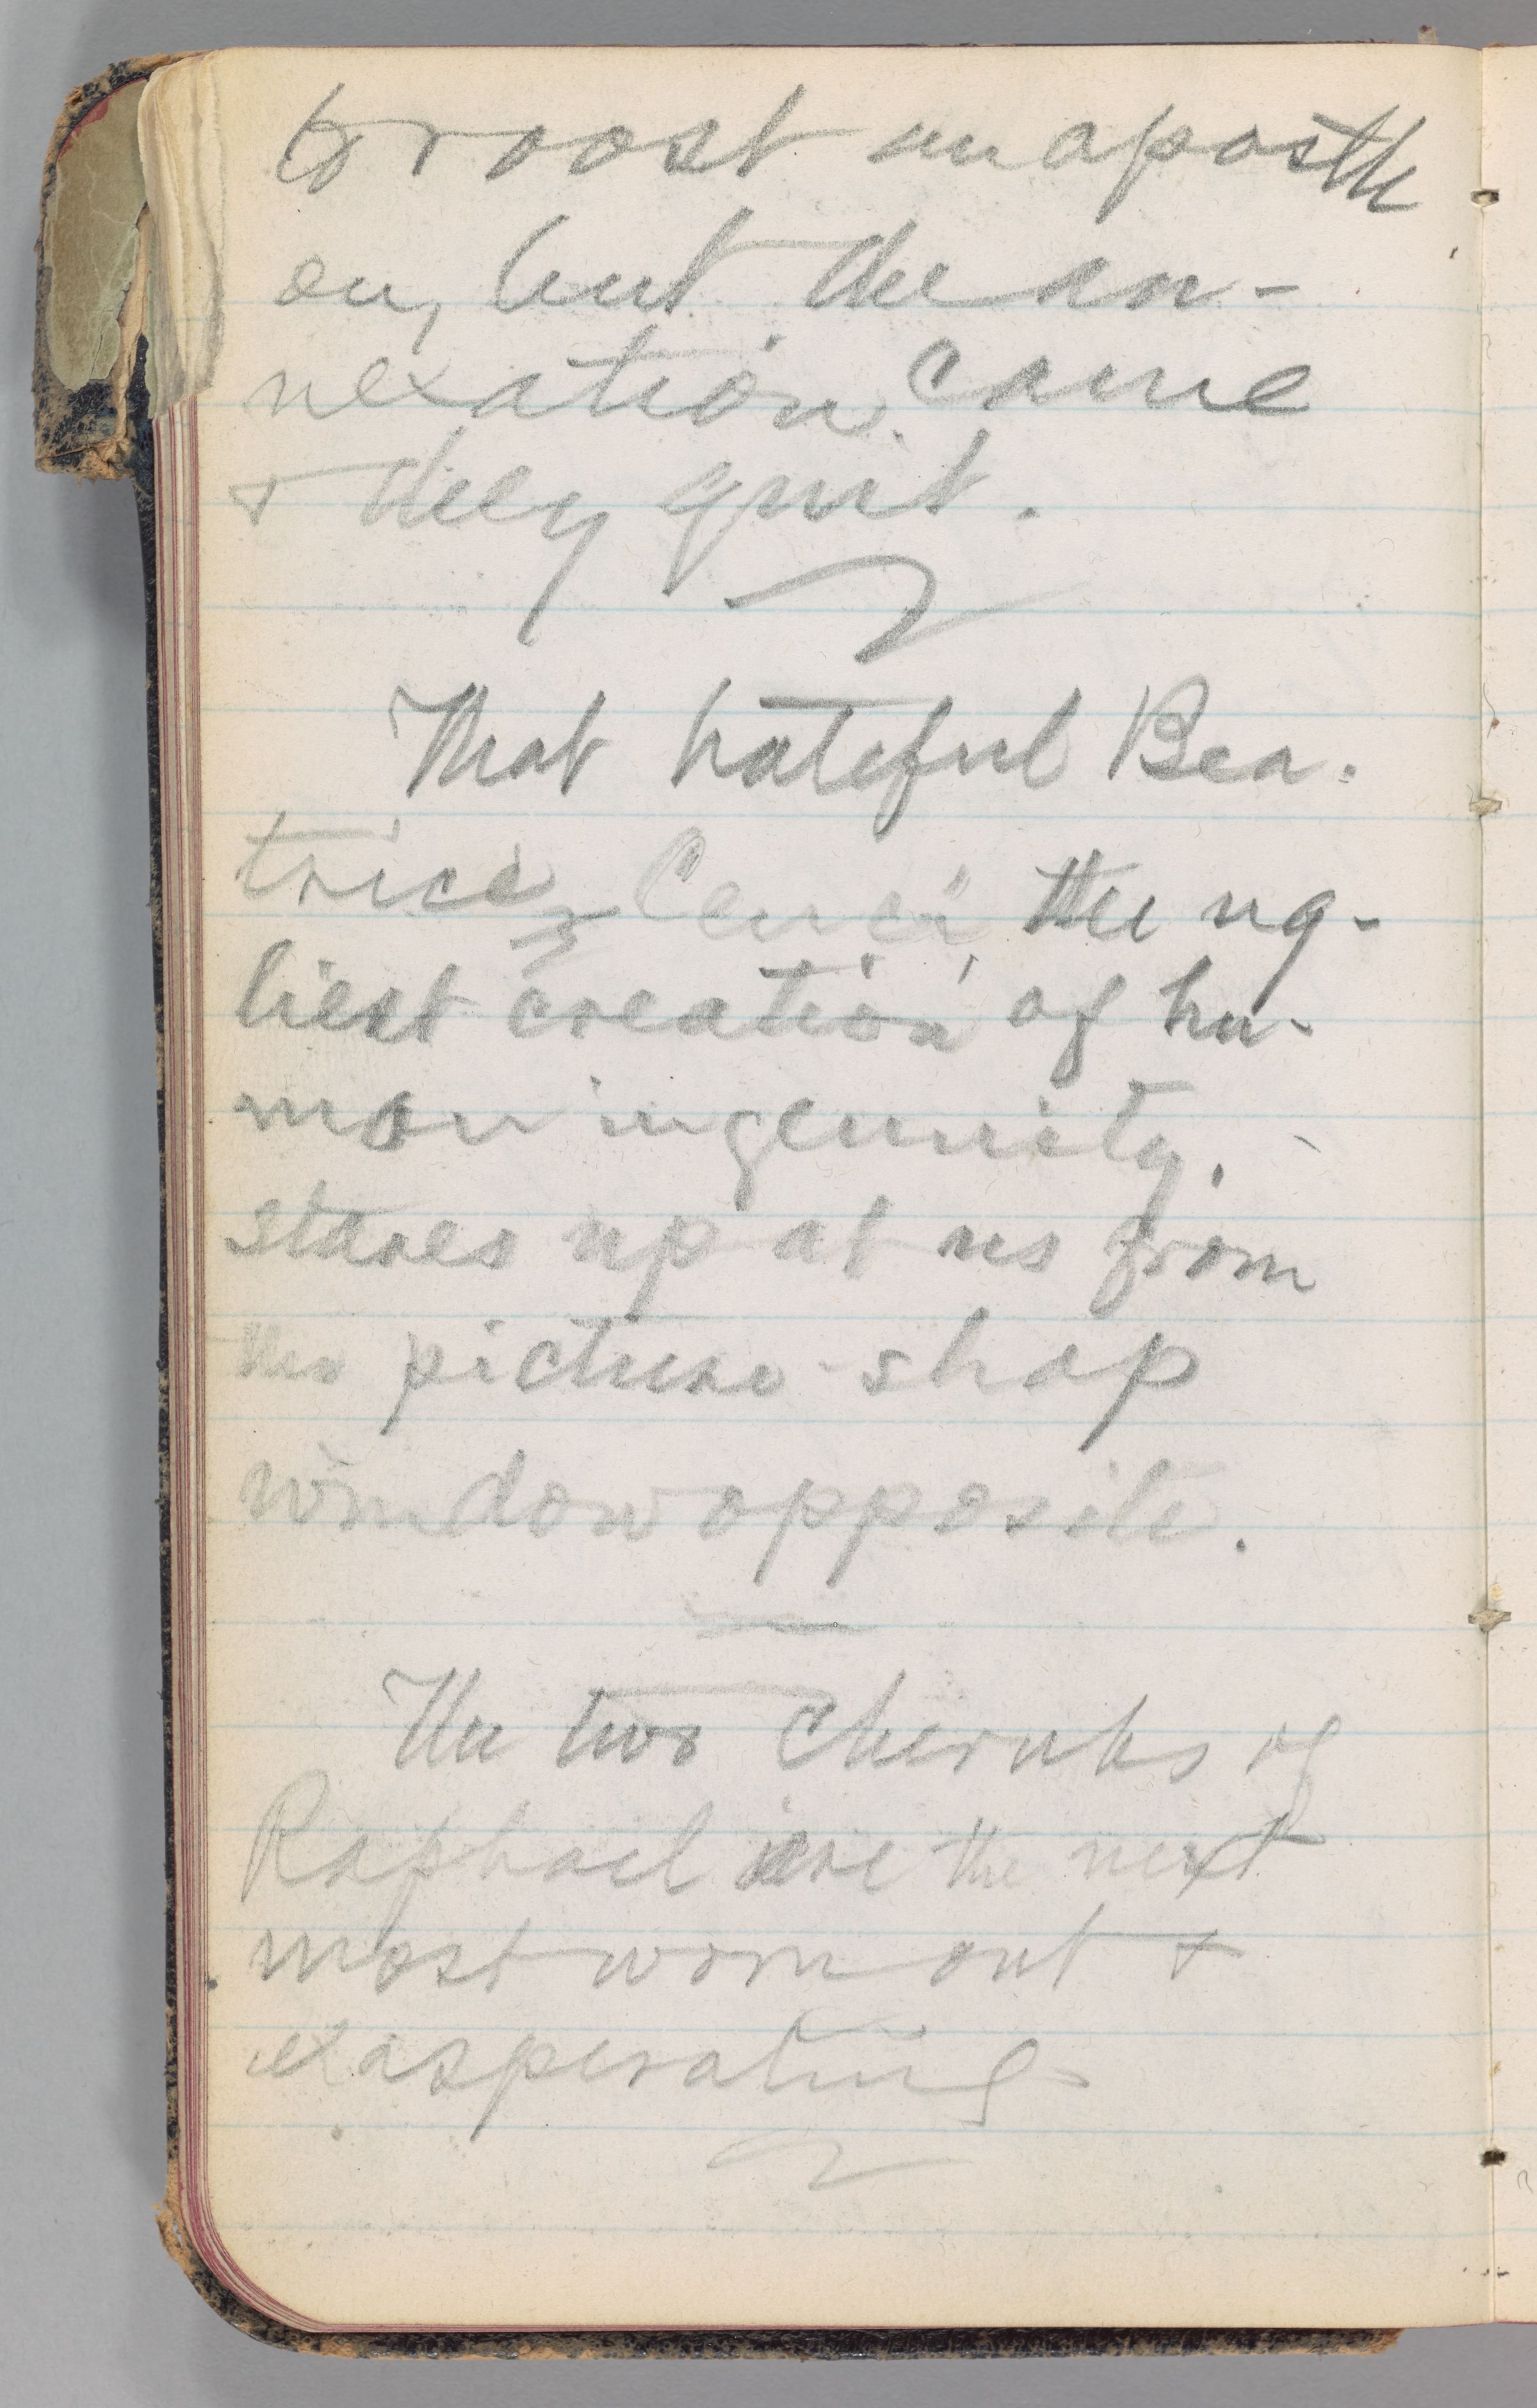 to roost an apostle
on, but the an-
nexation came
& they quit.
That hateful Bea-
trice Cenci, the ug-
liest creation of hu-
man ingenuity,
stares up at us from
the picture-shop
window opposite.
The two cherubs of
Raphael are the next
most worn out &
exasperating